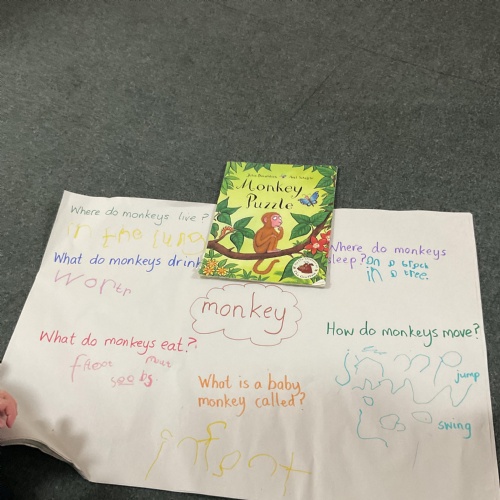 Julia Donaldson Axel Scheffler
Monkey
Puzzle
Where do monkeys live?
in the jung
What do monkeys drink
Where do monkeys
sleep?
on a brach
in a tree.
monkey
What do monkeys eat?
How do monkeys move?
jump
jump
swing
What is a baby
monkey called?
infant